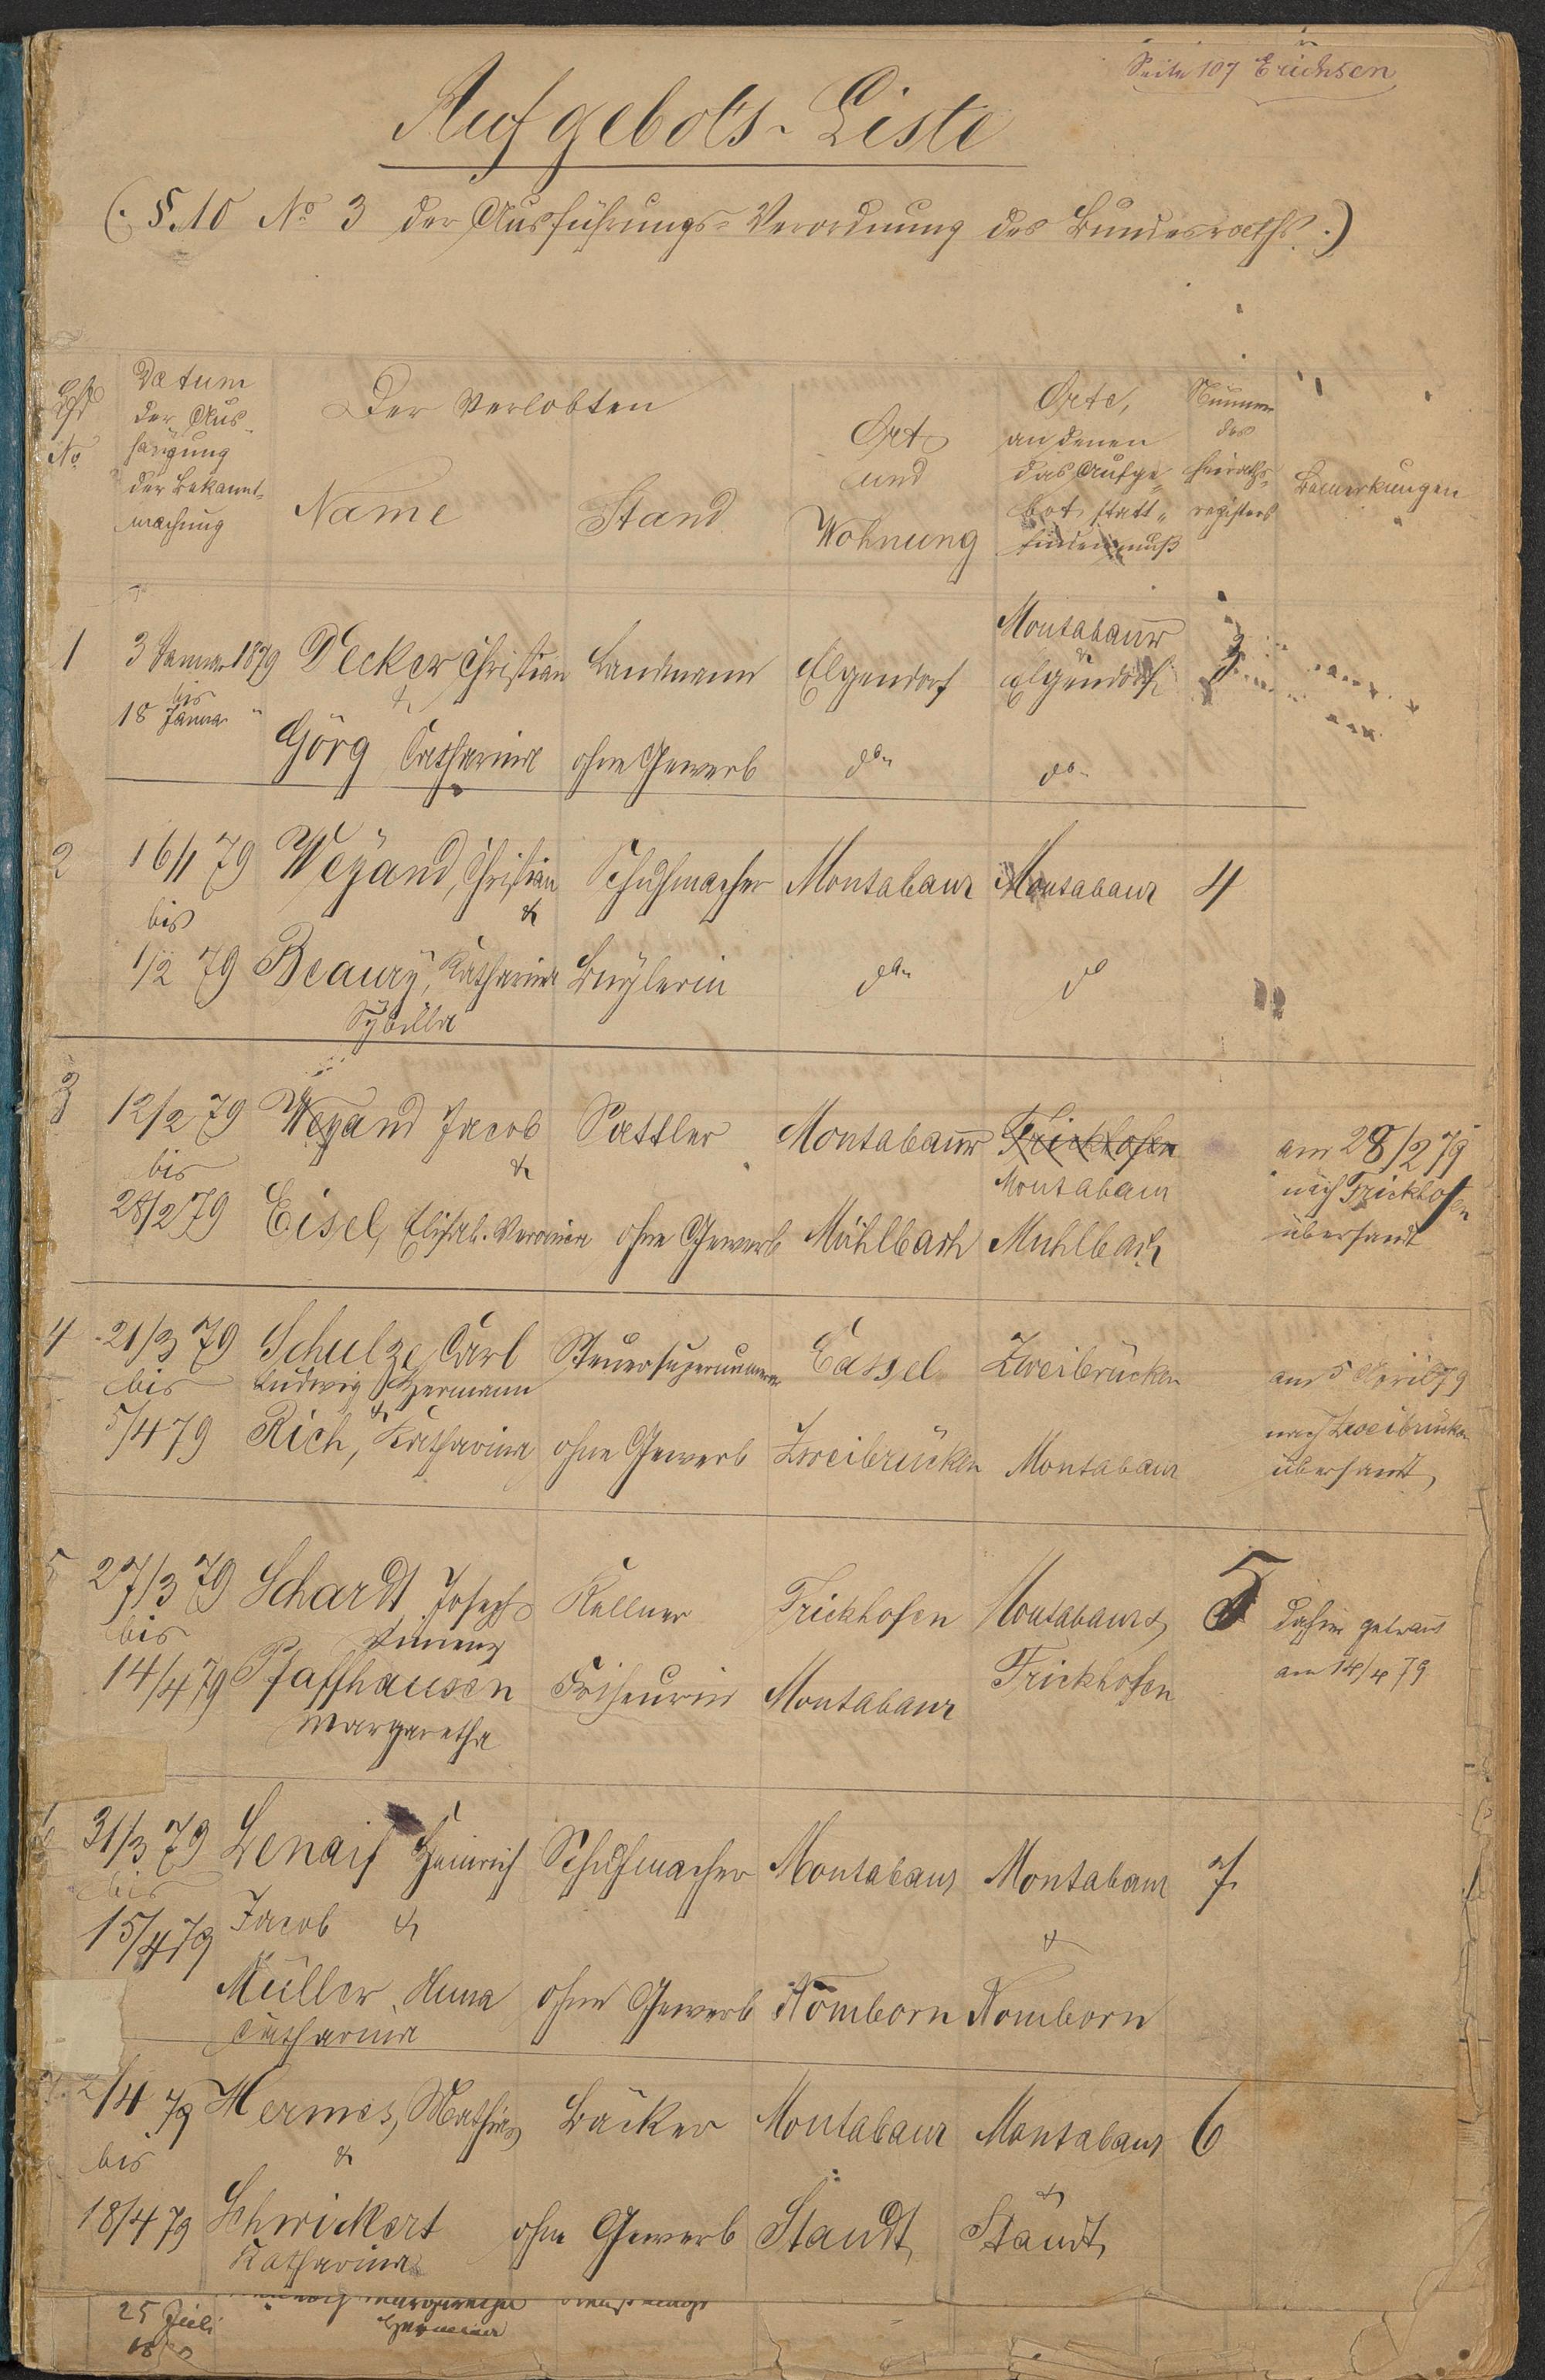 Seite 107 Erichsen
Aufgebots-Liste
(: §. 10 No 3 der Ausführungs-Verordnung des Bundesraths :)
Lfd No
Datum der Aus- hängung der Bekannt- machung
Der Verlobten
Name
Stand
Ort und Wohnung
Orte, an denen das Aufge- bot statt- finden muß
Nummer des Heiraths- registers
Bemerkungen
Montabaur
1 3 Januar 1879 Decker Christian Landmann Elgendorf & Elgendorf 3
bis &
18 Januar "
Görg Catharina ohne Gewerb do do
2 16/1 79 Weÿand, Christian Schuhmacher Montabaur Montabaur 4
bis &
1/2 79 Beaurÿ, Katharina Büglerin do do
Sybilla
3 12/2 79 Weyand Jacob Sattler Montabaur Frickhofen am 28/2 79
bis & Montabaur nach Frickhofen
28/2 79 Eisel, Elisab. Veronica ohne Gewerb Mühlbach Mühlbach übersandt
4 21/3 79 Schulze Carl Steuersupernumerar Cassel Zweibrücken am 5 April 79
bis Ludwig Hermann nach Zweibrücken
&
5/4 79 Rich, Katharina ohne Gewerb Zweibrücken Montabaur übersandt,
5 27/3 79 Schardt Joseph Kellner Frickhofen Montabaur & 5 dahier getraut
bis am 14/4 79
14/4 79 Pfaffhausen Friseurin Montabaur Frickhofen
Margaretha
31/3 79 Lenaif Heinrich Schuhmacher Montabaur Montabaur 7
bis
15/4 79 Jacob & &
Müller, Anna ohne Gewerb Nomborn Nomborn
Catharina
2/4 79 Hermes, Mathias Bäcker Montabaur Montabaur 6
bis & &
18/4 79 Schwickert ohne Gewerb Staudt, Staudt,
Katharina
25 Juli